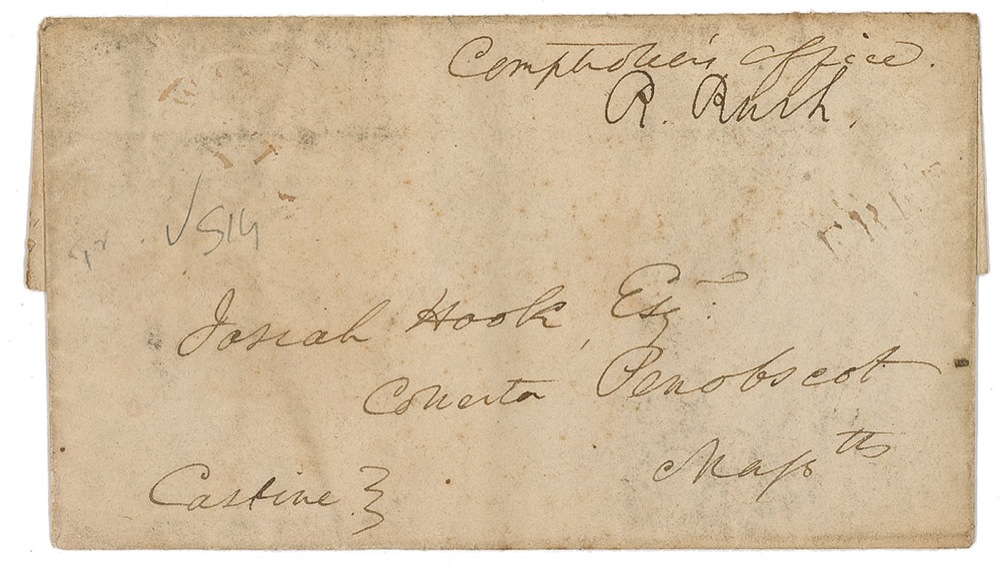 Comptroller's Office.
R. Rush.
SIG
Josiah Hook, Esqr.
Collector Penobscot
Masstts
Castine }